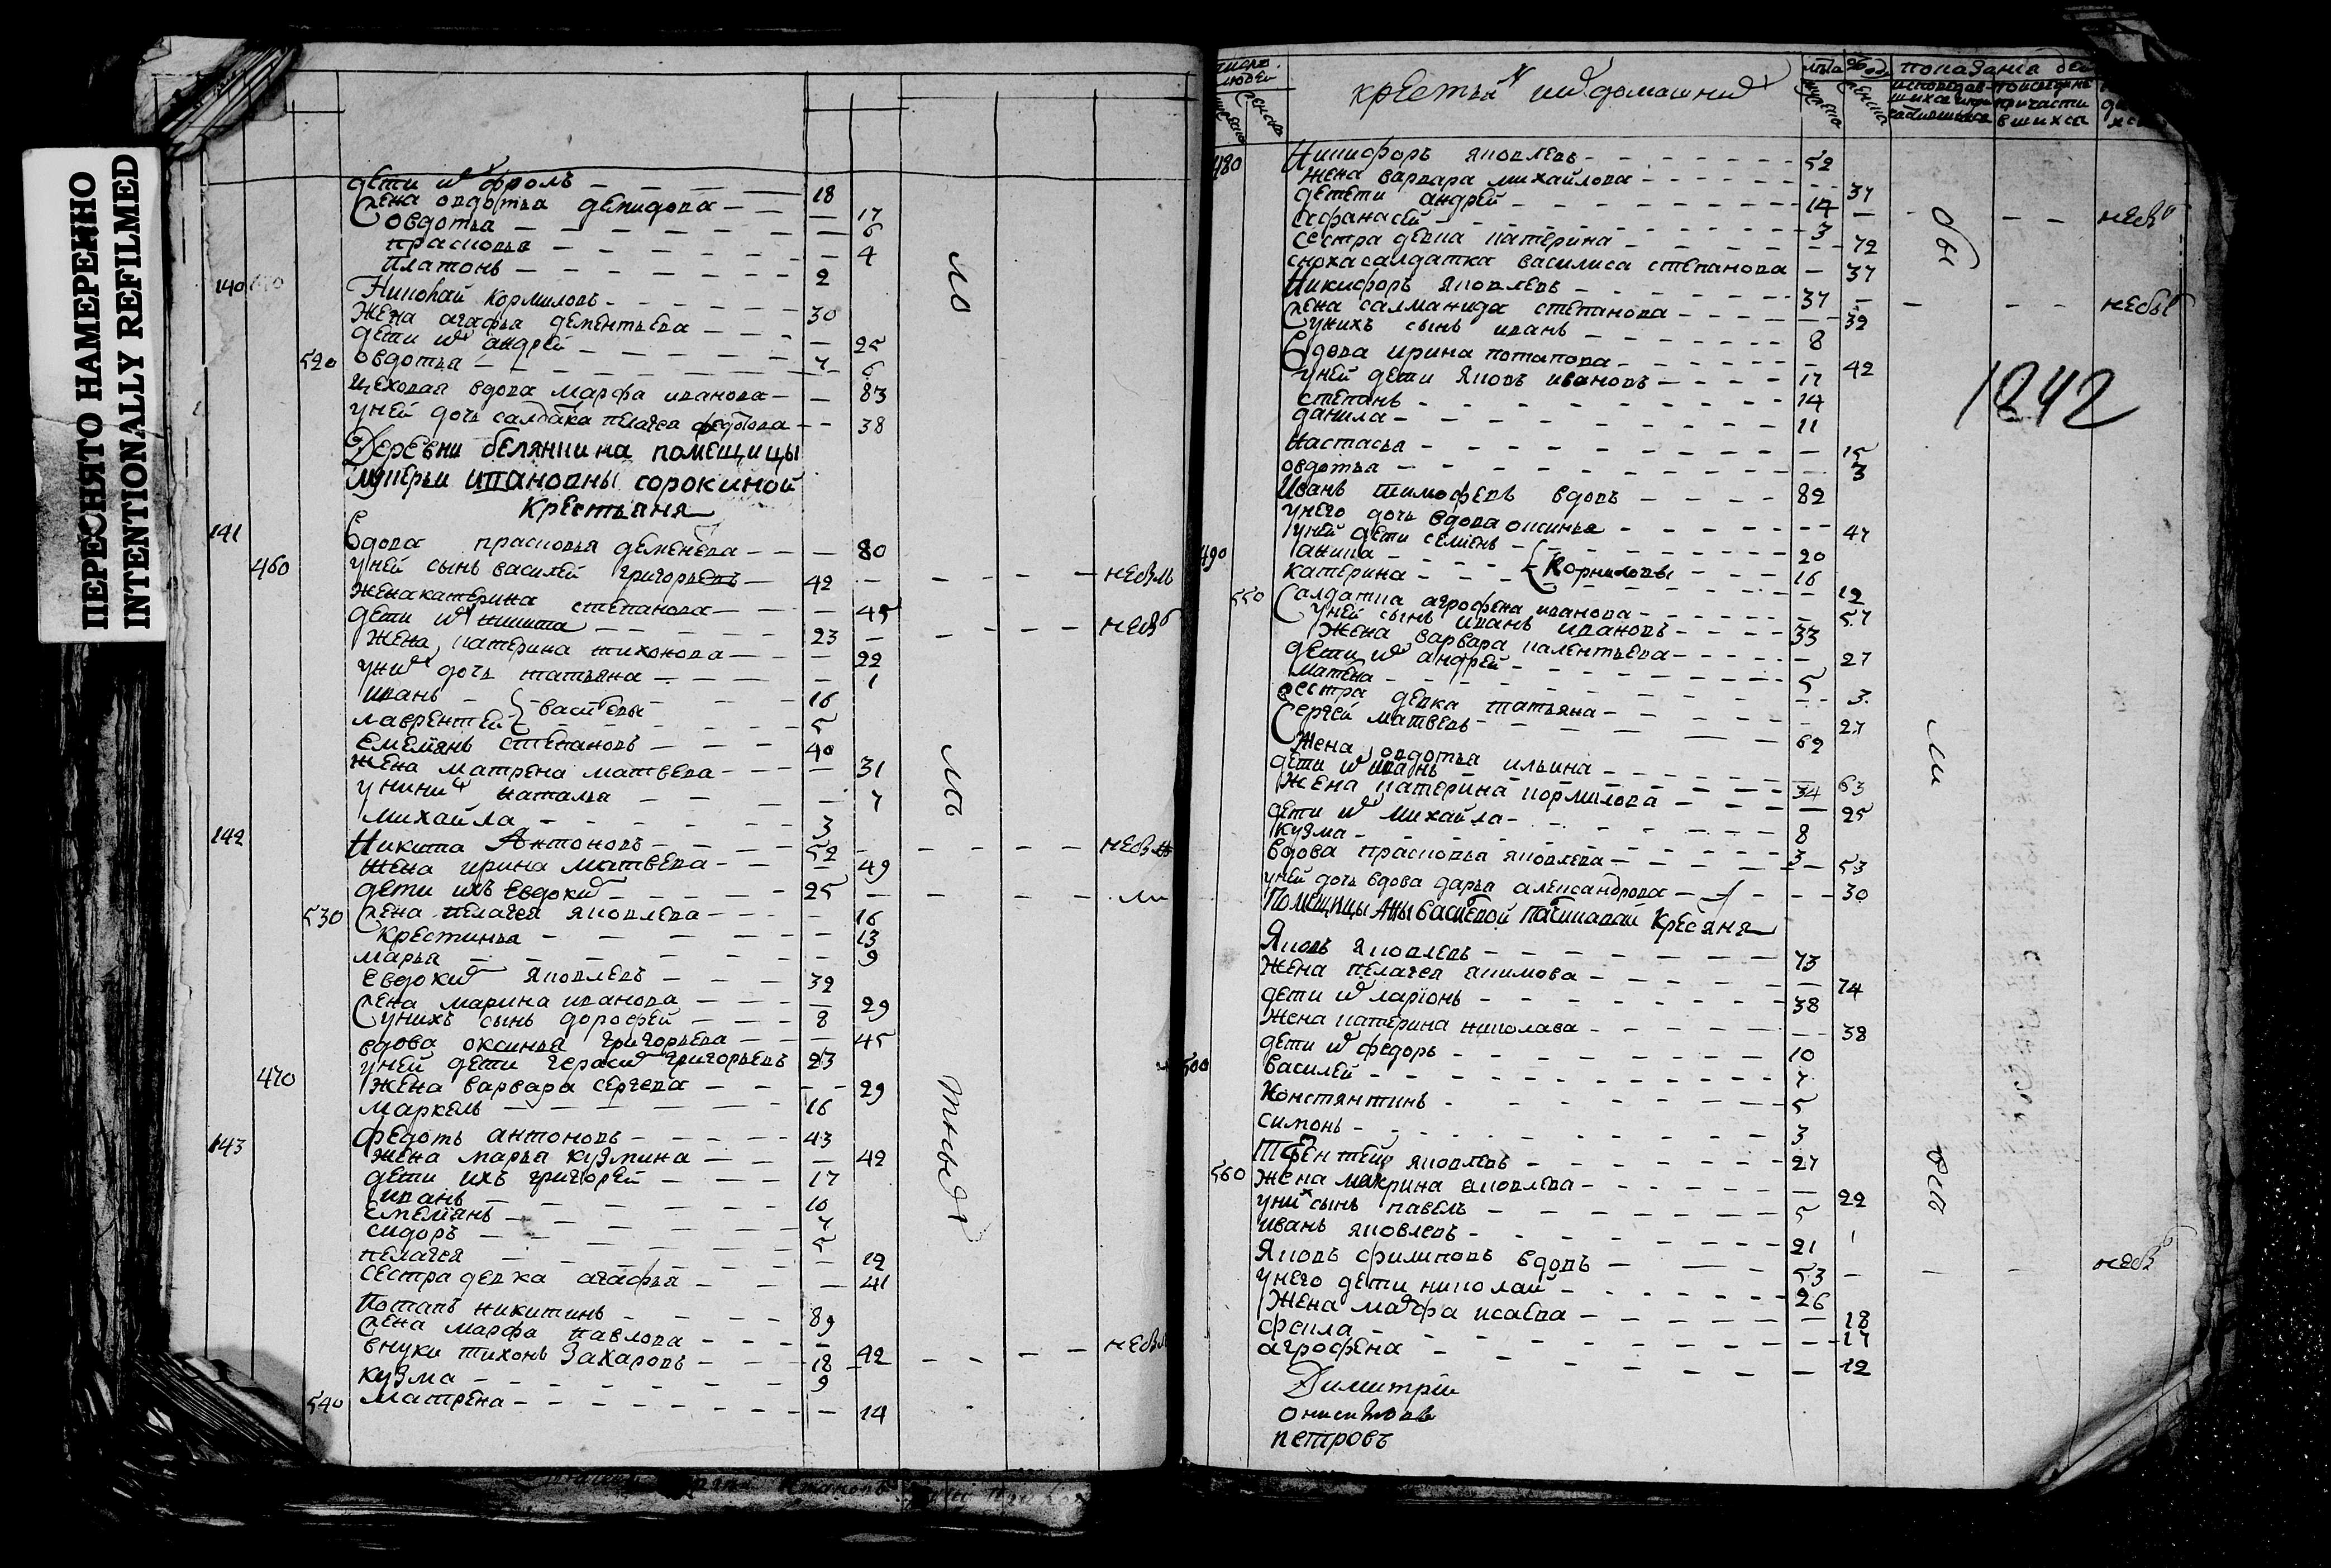 ПЕРЕСНЯТО НАМЕРЕННО
INTENTIONALLY REFILMED
дети их фролъ 18
жена овдотья демидова 17
овдотья 6
прасковья 4
платонъ 2
140 Николай Кормиловъ 30
жена агафья дементьева 25
дети их андрей 7
520 овдотья 6
цеховая вдова марфа иванова 83
у ней дочь салдатка пелагея федотова 38
Деревни белянкина помещицы
сорокиной
Крестьяня
141 Вдова прасковья 80
460 у ней сынъ василей григорьевъ 42
жена катерина степанова 45
дети их никита 23
жена катерина тихонова 22
у них дочь татьяна 1
иванъ 16
лаврентей 5
емельянъ степановъ 40
жена матрена матвева 31
наталья 7
михайла 3
142 Никита Антоновъ 52
жена ирина матвева 49
дети ихъ евдоким 25
530 жена пелагея яковлева 16
крестинья 13
марья 9
евдоким яковлевъ 32
жена марина иванова 29
у нихъ сынъ дорофей 8
вдова оксинья григорьева 45
у ней дети герасим григорьевъ 23
470 жена варвара сергева 29
маркелъ 16
143 федотъ антоновъ 43
жена марья кузмина 42
дети ихъ григорей 17
иванъ 10
емельянъ 7
сидоръ 5
пелагея 12
сестра девка агафья 41
Потапъ никитинъ 89
жена марфа павлова 42
внуки тихонъ Захаровъ 18
кузма 9
540 матрена 14
по
ль
тных
число людей
крестьян их домашних
лета от роду
показания
480 Никифоръ яковлевъ 52
жена варвара михайлова 37
дети андрей 14
афанасей 3
сестра девка катерина 72
сноха салдатка василиса степанова 37
Никифоръ яковлевъ 37
жена саламанида степанова 32
у нихъ сынъ иванъ 8
Вдова ирина потапова 42
у ней дети яковъ ивановъ 17
степанъ 14
данила 11
настасья 15
овдотья 3
Иванъ тимофевъ вдовъ 82
у него дочь вдова оксинья 47
у ней дети семенъ 20
490 аника 16 Корниловы
катерина 12
550 Салдатка агрофена иванова 57
у ней сынъ иванъ ивановъ 33
жена варвара калентьева 27
дети их андрей 5
матрена 3
сестра девка татьяна 27
Сергей матвевъ 62
жена овдотья ильина 63
дети их иванъ 34
жена катерина кормилова 25
дети их михайла 8
кузма 3
вдова прасковья яковлева 53
у ней дочь вдова дарья александрова 30
Помещицы Анны Васильевой Кресяня
Яковъ яковлевъ 73
жена пелагея якимова 74
дети их ларионъ 38
жена катерина николава 38
дети их федоръ 10
500 василей 7
Константинъ 5
симонъ 3
терентей яковлевъ 27
560 жена макрина яковлева 22
у них сынъ павелъ 5
иванъ яковлевъ 21
Яковъ филиповъ вдовъ 53
у него дети николай 26
жена марфа исаева 18
фекла 17
агрофена 12
Димитрiи
петровъ
1842
бы
ли